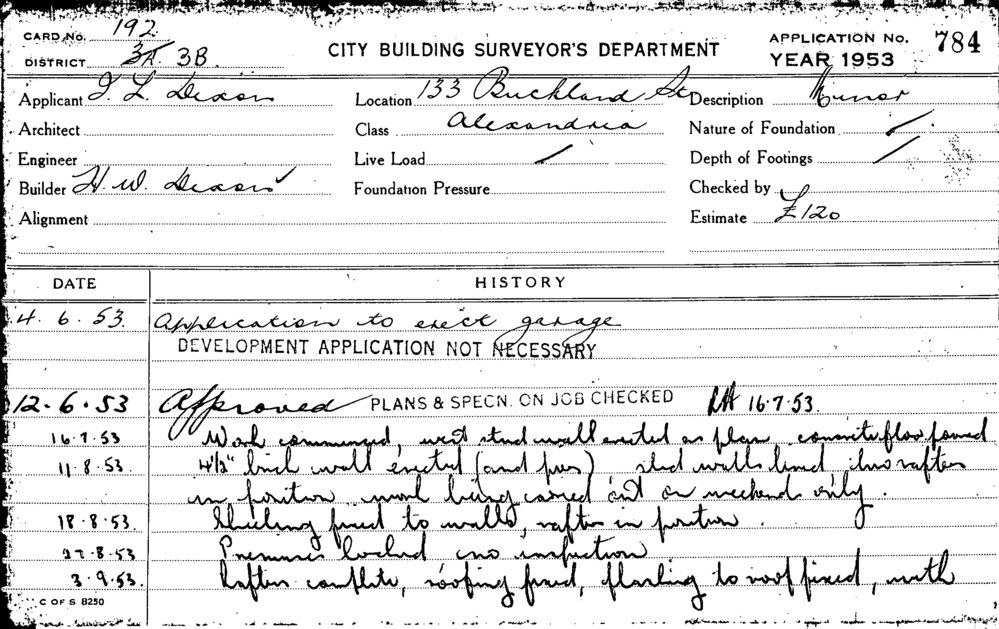 CARD No. 192
DISTRICT 3A 3B
CITY BUILDING SURVEYOR'S DEPARTMENT
APPLICATION No. 784
YEAR 1953
Applicant I. L. Dixon
Location 133 Buckland St
Description Minor
Architect
Class Alexandria
Nature of Foundation
Engineer
Live Load
Depth of Footings
Builder H. W. Dixon
Foundation Pressure
Checked by
Alignment
Estimate £120
DATE HISTORY
4. 6. 53. Application to erect garage
DEVELOPMENT APPLICATION NOT NECESSARY
12. 6. 53 Approved PLANS & SPECN. ON JOB CHECKED 16.7.53.
16.7.53 Work commenced, west stud wall erected as plan concrete floor poured
11.8.53. 4½" brick wall erected (and piers) stud walls lined rafters
in position work being carried out on weekend only.
18.8.53. Sheeting fixed to walls, rafters in position.
27.8.53 Premises locked no inspection
3.9.53. Rafters complete, roofing fixed, flashing to roof fixed, with
C OF S 8250